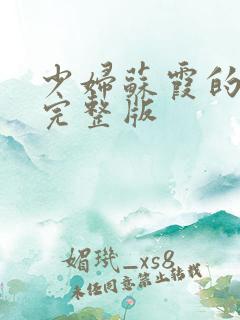 少婦蘇霞的
完整版
媚璣_xs8
未经同意禁止转载